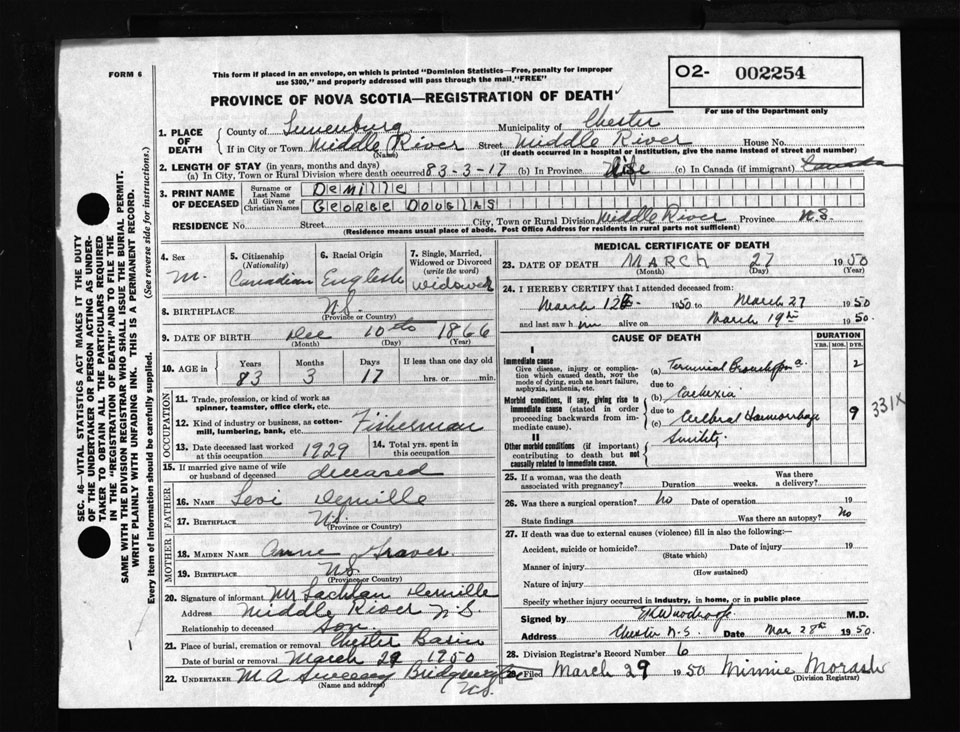 FORM 6
This form if placed in an envelope, on which is printed "Dominion Statistics—Free, penalty for improper
use $300," and properly addressed will pass through the mail, "FREE"
O2- 002254
For use of the Department only
PROVINCE OF NOVA SCOTIA—REGISTRATION OF DEATH
1. PLACE OF DEATH
County of Lunenburg Municipality of Chester
If in City or Town Middle River Street Middle River House No.
(Name) (If death occurred in a hospital or institution, give the name instead of street and number)
2. LENGTH OF STAY (in years, months and days)
(a) In City, Town or Rural Division where death occurred 83-3-17 (b) In Province Life (c) In Canada (if immigrant)
3. PRINT NAME OF DECEASED
Surname or Last Name DEMILLE
All Given or Christian Names GEORGE DOUGLAS
RESIDENCE No. Street City, Town or Rural Division Middle River Province N.S.
(Residence means usual place of abode. Post Office Address for residents in rural parts not sufficient)
4. Sex M.
5. Citizenship (Nationality) Canadian
6. Racial Origin English
7. Single, Married, Widowed or Divorced (write the word) widowed
8. BIRTHPLACE N.S.
(Province or Country)
9. DATE OF BIRTH Dec 10th 1866
(Month) (Day) (Year)
10. AGE in Years Months Days If less than one day old
83 3 17 hrs. or min.
OCCUPATION
11. Trade, profession, or kind of work as spinner, teamster, office clerk, etc.
12. Kind of industry or business, as cotton-mill, lumbering, bank, etc. Fisherman
13. Date deceased last worked at this occupation 1929
14. Total yrs. spent in this occupation
15. If married give name of wife or husband of deceased deceased
FATHER
16. NAME Levi Demille
17. BIRTHPLACE N.S.
(Province or Country)
MOTHER
18. MAIDEN NAME Annie Graves
19. BIRTHPLACE N.S.
(Province or Country)
20. Signature of informant Mr Lachlan Demille
Address Middle River N.S.
Relationship to deceased Son.
21. Place of burial, cremation or removal Chester Basin
Date of burial or removal March 29 1950
22. UNDERTAKER M A Sweeney Bridgewater N.S.
(Name and address)
MEDICAL CERTIFICATE OF DEATH
23. DATE OF DEATH MARCH 27 1950
(Month) (Day) (Year)
24. I HEREBY CERTIFY that I attended deceased from:
March 12th 1950 to March 27 1950
and last saw him alive on March 19th 1950.
CAUSE OF DEATH
DURATION
YRS. MOS. DYS.
I
Immediate cause
Give disease, injury or complication which caused death, not the mode of dying, such as heart failure, asphyxia, asthenia, etc.
(a) Terminal 2
due to
Morbid conditions, if any, giving rise to immediate cause (stated in order proceeding backwards from immediate cause).
(b) Cachexia
due to
(c) Cerebral Haemorrhage 9
331X
II
Other morbid conditions (if important) contributing to death but not causally related to immediate cause.
Senility
25. If a woman, was the death associated with pregnancy? Duration weeks. Was there a delivery?
26. Was there a surgical operation? No Date of operation 19
State findings Was there an autopsy? No
27. If death was due to external causes (violence) fill in also the following:
Accident, suicide or homicide? Date of injury 19
(State which)
Manner of injury
(How sustained)
Nature of injury
Specify whether injury occurred in industry, in home, or in public place
Signed by M.D.
Address Chester N.S. Date Mar 28th 1950.
28. Division Registrar's Record Number 6
29. Filed March 29 1950 Minnie Morash
(Division Registrar)
SEC. 46—VITAL STATISTICS ACT MAKES IT THE DUTY
OF THE UNDERTAKER OR PERSON ACTING AS UNDER-
TAKER TO OBTAIN ALL THE PARTICULARS REQUIRED
IN THE "REGISTRATION OF DEATH" AND TO FILE THE
SAME WITH THE DIVISION REGISTRAR WHO SHALL ISSUE THE BURIAL PERMIT.
WRITE PLAINLY WITH UNFADING INK. THIS IS A PERMANENT RECORD.
Every item of information should be carefully supplied. (See reverse side for instructions.)